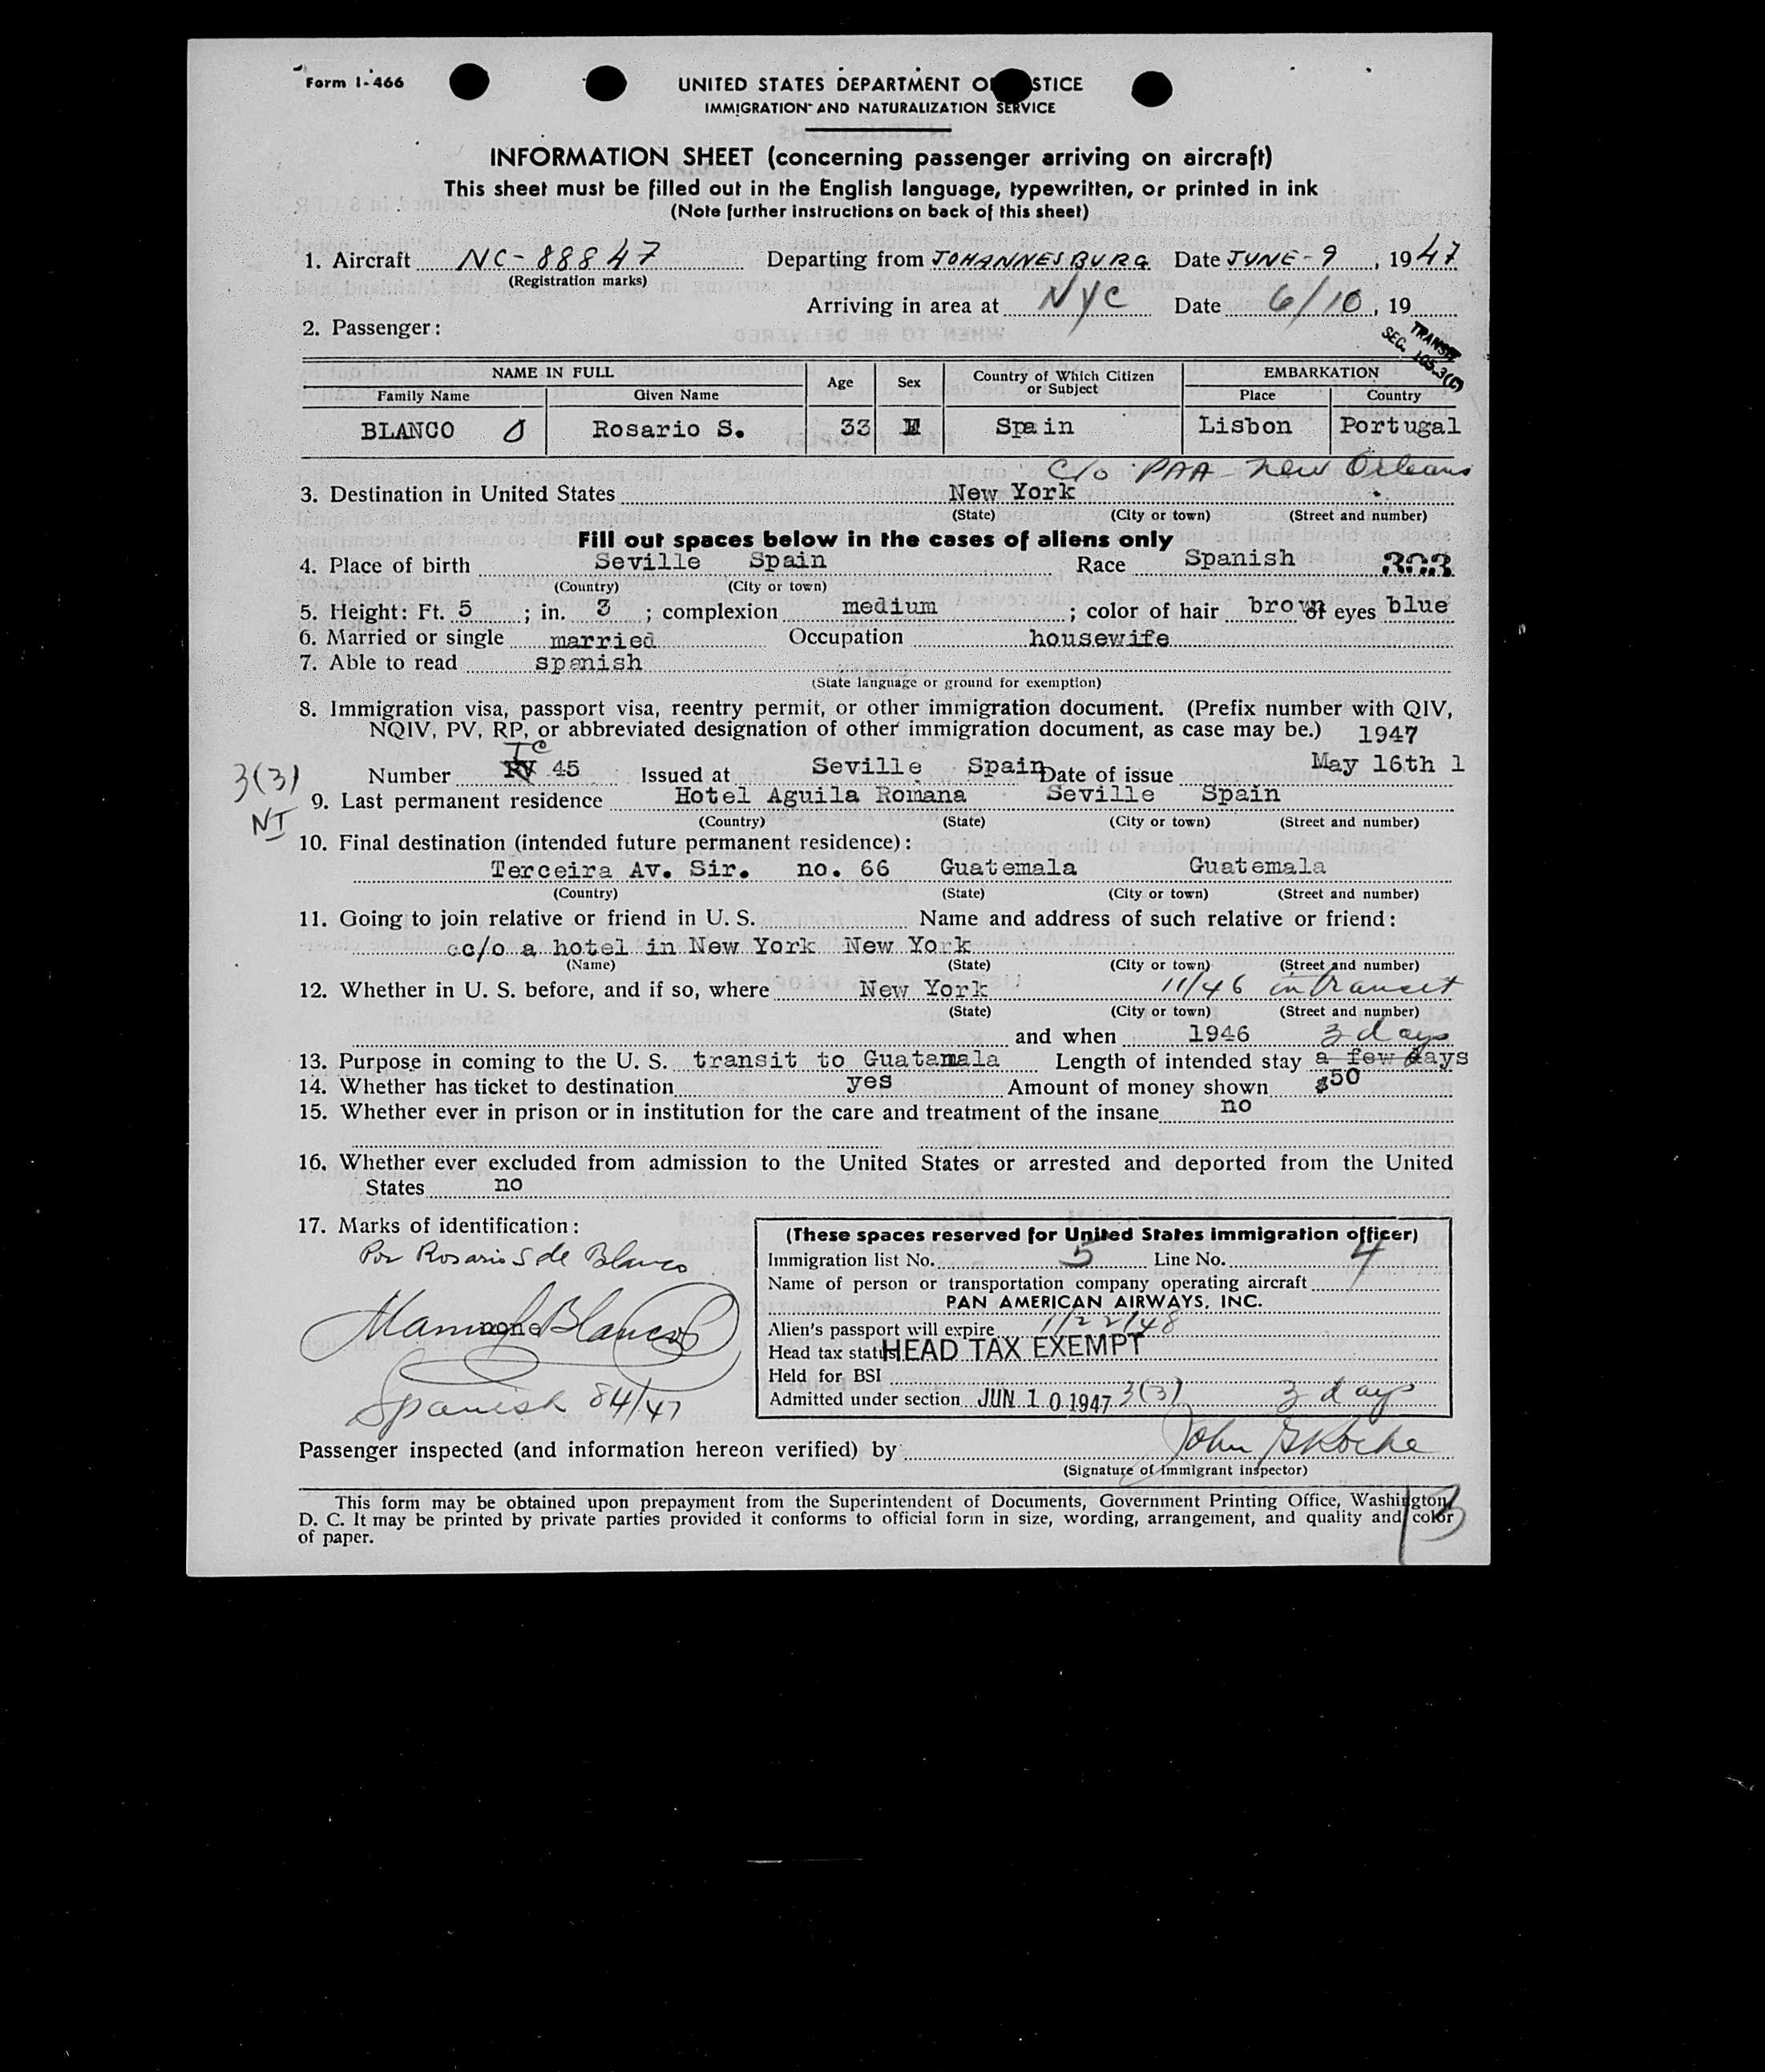 Form I-466
UNITED STATES DEPARTMENT O STICE
IMMIGRATION AND NATURALIZATION SERVICE
INFORMATION SHEET (concerning passenger arriving on aircraft)
This sheet must be filled out in the English language, typewritten, or printed in ink
(Note further instructions on back of this sheet)
1. Aircraft NC-88847 Departing from JOHANNESBURG Date JUNE-9, 1947
(Registration marks)
Arriving in area at NYC Date 6/10, 19
2. Passenger:
TRANSIT
SEC. 105.3(C)
NAME IN FULL Age Sex Country of Which Citizen or Subject EMBARKATION
Family Name Given Name Place Country
BLANCO Rosario S. 33 Spain Lisbon Portugal
c/o PAA New Orleans
3. Destination in United States New York
(State) (City or town) (Street and number)
Fill out spaces below in the cases of aliens only
4. Place of birth Seville Spain Race Spanish 303
(Country) (City or town)
5. Height: Ft. 5; in. 3; complexion medium; color of hair brown of eyes blue
6. Married or single married Occupation housewife
7. Able to read spanish
(State language or ground for exemption)
8. Immigration visa, passport visa, reentry permit, or other immigration document. (Prefix number with QIV,
NQIV, PV, RP, or abbreviated designation of other immigration document, as case may be.) 1947
3(3) Number TC PV 45 Issued at Seville Spain Date of issue May 16th 1
NI 9. Last permanent residence Hotel Aguila Romana Seville Spain
(Country) (State) (City or town) (Street and number)
10. Final destination (intended future permanent residence):
Terceira Av. Sir. no. 66 Guatemala Guatemala
(Country) (State) (City or town) (Street and number)
11. Going to join relative or friend in U. S. Name and address of such relative or friend:
cc/o a hotel in New York New York
(Name) (State) (City or town) (Street and number)
12. Whether in U. S. before, and if so, where New York 11/46 in transit
(State) (City or town) (Street and number)
and when 1946 3 days
13. Purpose in coming to the U. S. transit to Guatamala Length of intended stay a few days
14. Whether has ticket to destination yes Amount of money shown $50
15. Whether ever in prison or in institution for the care and treatment of the insane no
16. Whether ever excluded from admission to the United States or arrested and deported from the United
States no
17. Marks of identification:
Por Rosario S de Blanco
none
Manuel Blanco
Spanish 84/47
(These spaces reserved for United States immigration officer)
Immigration list No. 5 Line No. 4
Name of person or transportation company operating aircraft
PAN AMERICAN AIRWAYS, INC.
Alien's passport will expire 1/22/48
Head tax status HEAD TAX EXEMPT
Held for BSI
Admitted under section JUN 10 1947 3(3) 3 days
Passenger inspected (and information hereon verified) by John
(Signature of immigrant inspector)
This form may be obtained upon prepayment from the Superintendent of Documents, Government Printing Office, Washington,
D. C. It may be printed by private parties provided it conforms to official form in size, wording, arrangement, and quality and color
of paper.